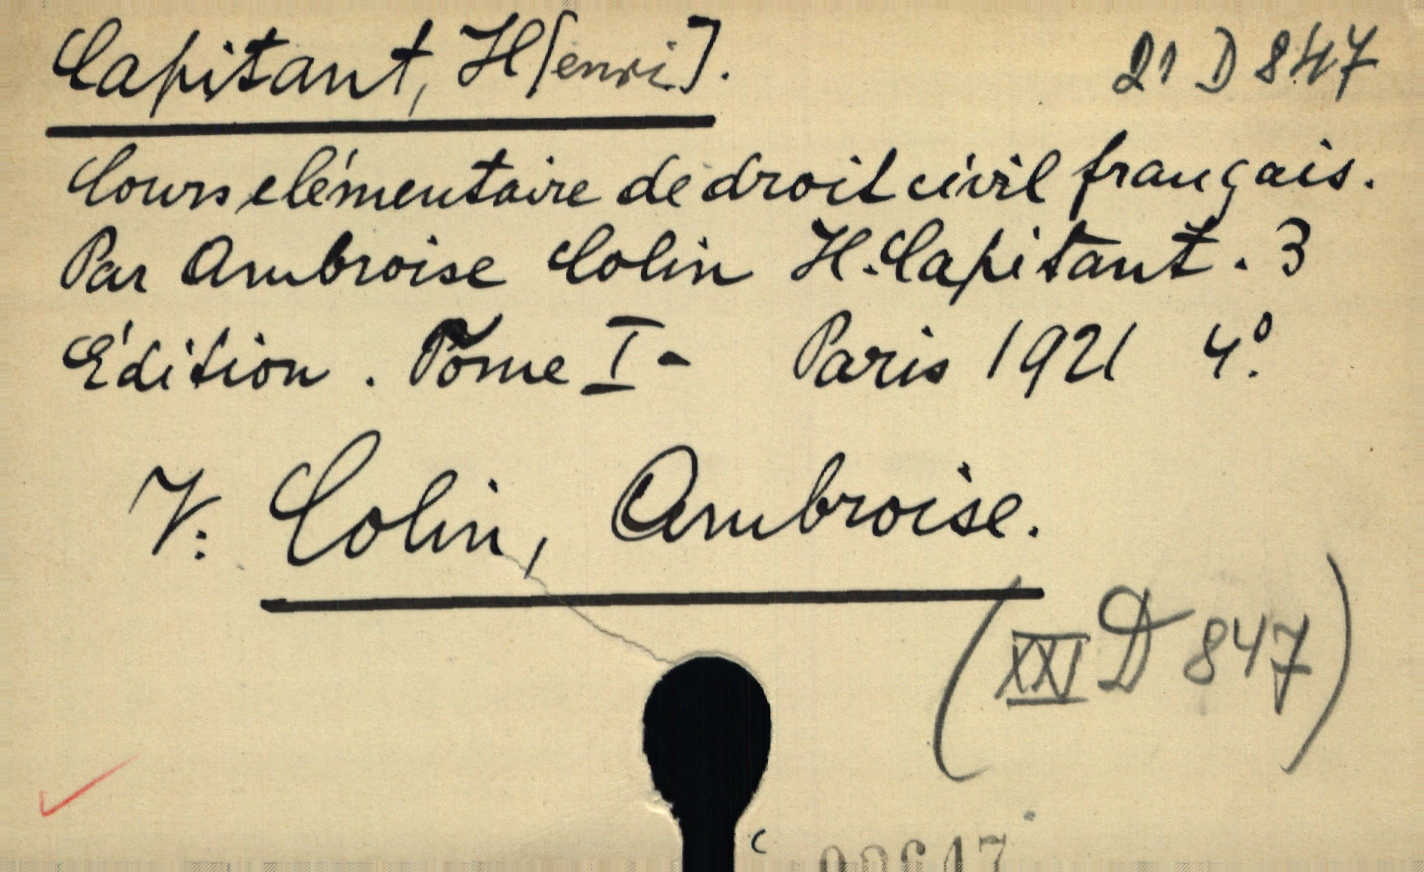 Capitant, H[enri].
21 D 847
Cours elémentaire de droit civil français.
Par Ambroise Colin H. Capitant. 3
Édition. Tome I- Paris 1921 4°.
V: Colin, Ambroise.
(XXI D 847)